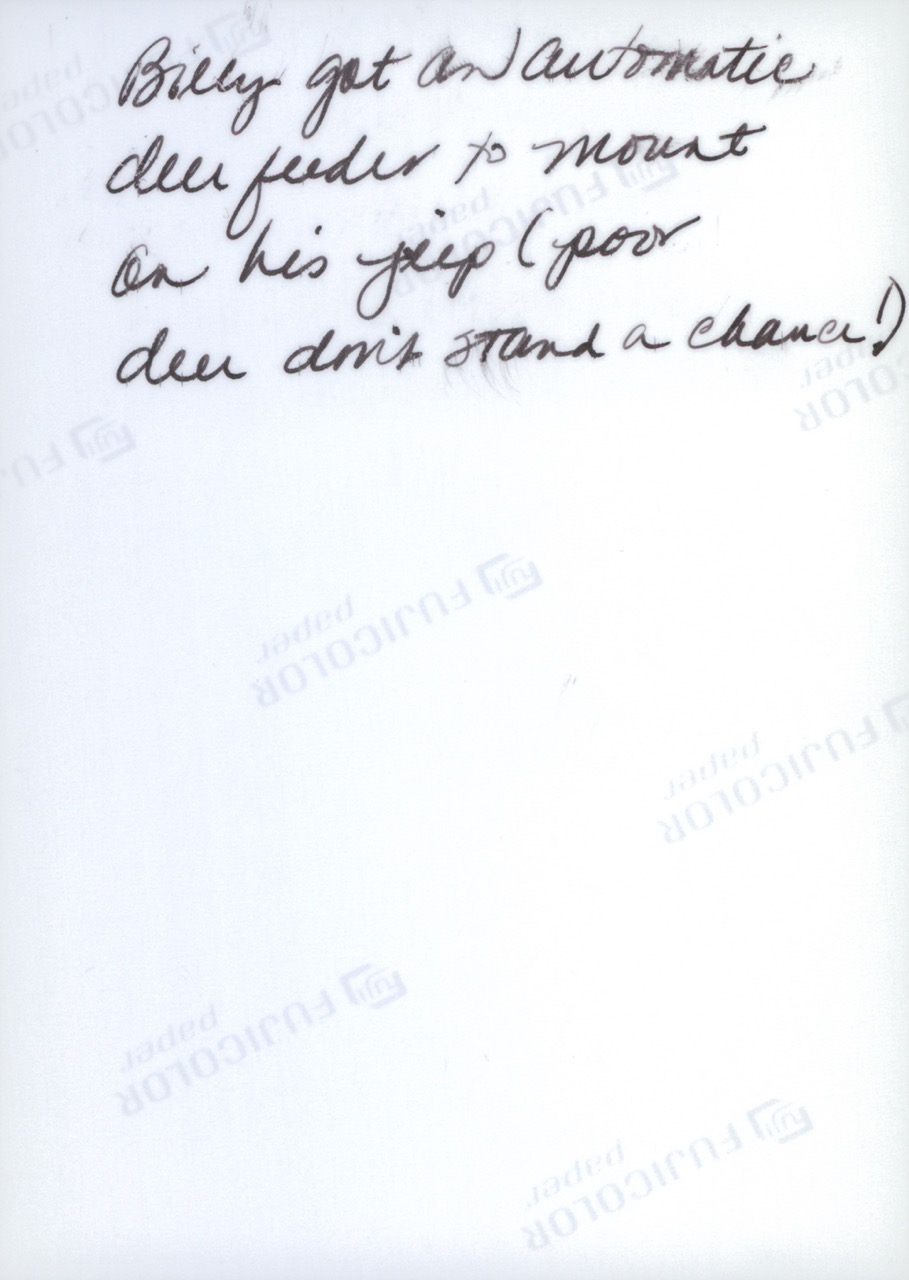 Billy got an automatic
deer feeder to mount
on his jeep (poor
deer don't stand a chance!)
FUJICOLOR
paper
FUJICOLOR
paper
FUJICOLOR
paper
FUJI
FUJICOLOR
paper
FUJICOLOR
paper
FUJICOLOR
paper
FUJICOLOR
paper